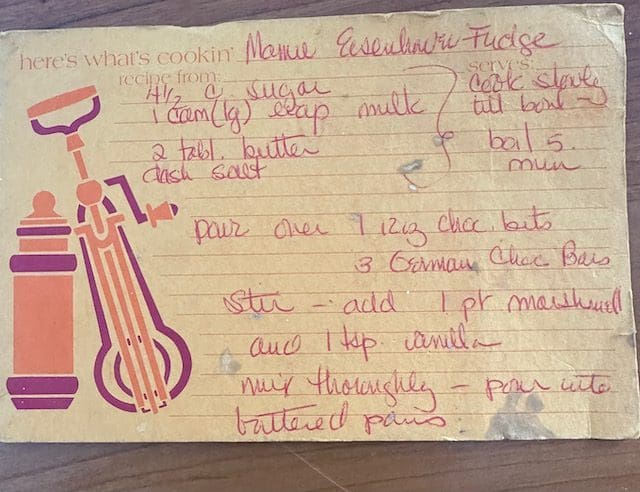 here's what's cookin' Mamie Eisenhower Fudge
recipe from: serves:
4 1/2 c. sugar
1 can (lg) evap milk
2 tabl. butter
dash salt
cook slowly
till boil -
boil 5
min
pour over 1 12oz choc. bits
3 German Choc Bars
Stir - add 1 pt marshmell
and 1 tsp. vanilla
mix thoroughly - pour into
buttered pans.